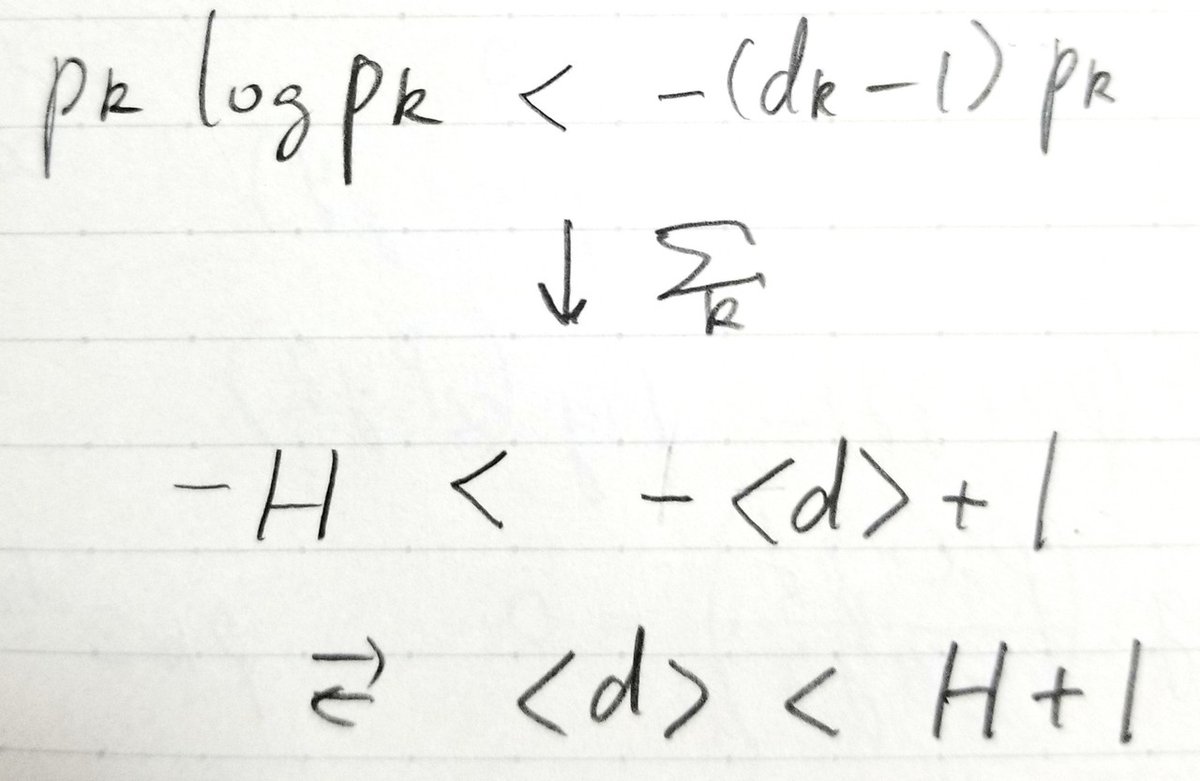 pk log pk < -(dk-1) pk
↓ Σ k
-H < -<d>+1
⇄ <d> < H+1